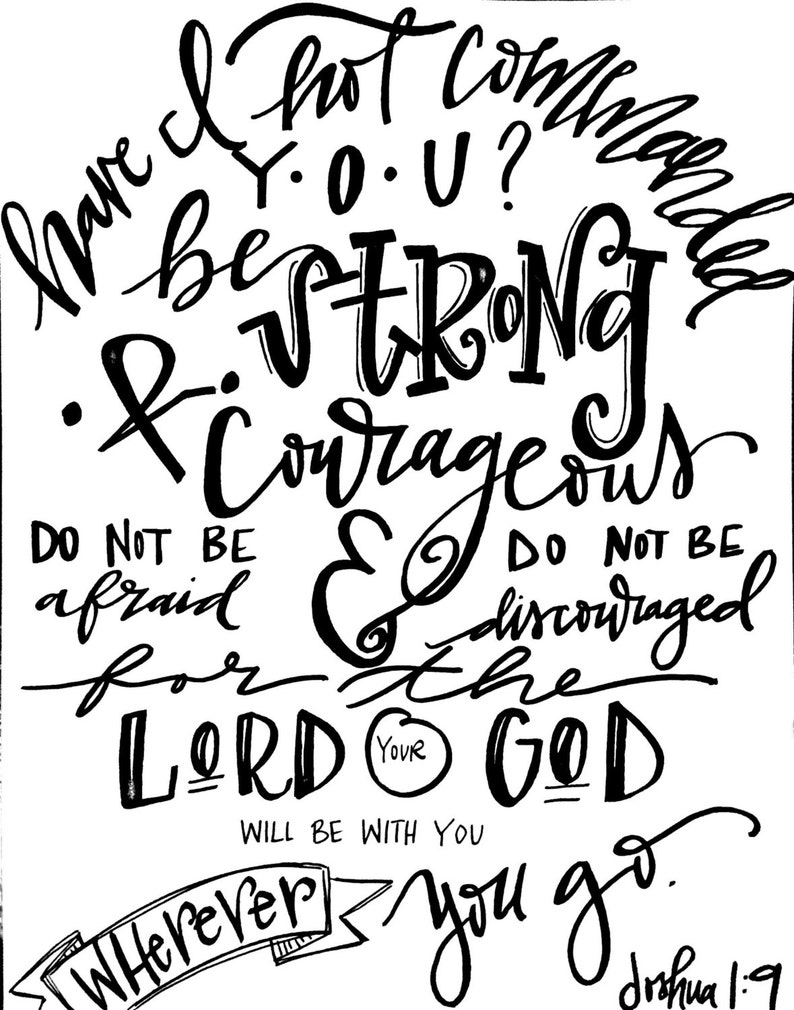 have I not commanded
Y·O·U?
be STRONG
·&·
Courageous
DO NOT BE afraid
&
DO NOT BE discouraged
for the
LORD YOUR GOD
WILL BE WITH YOU
WHerever you go.
Joshua 1:9